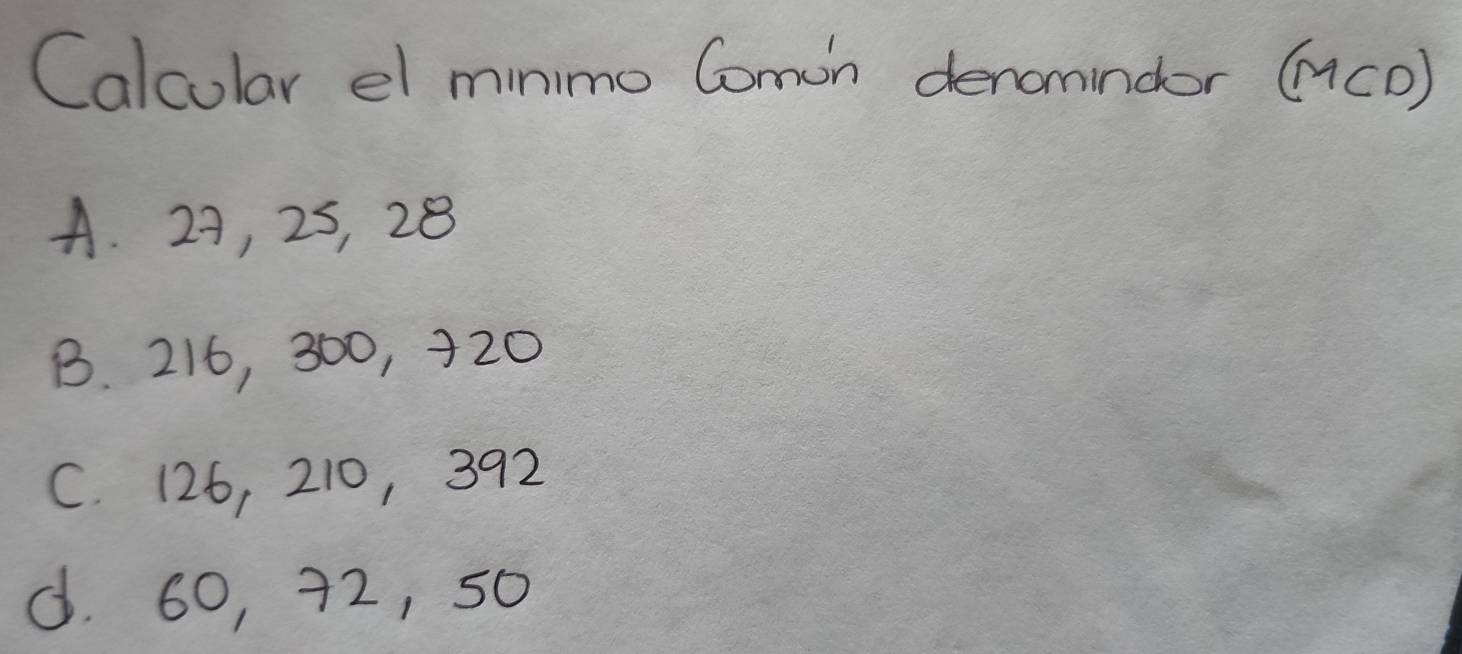 Calcular el minimo Común denomindor (MCD)
A. 27, 25, 28
B. 216, 300, 720
C. 126, 210, 392
d. 60, 72, 50